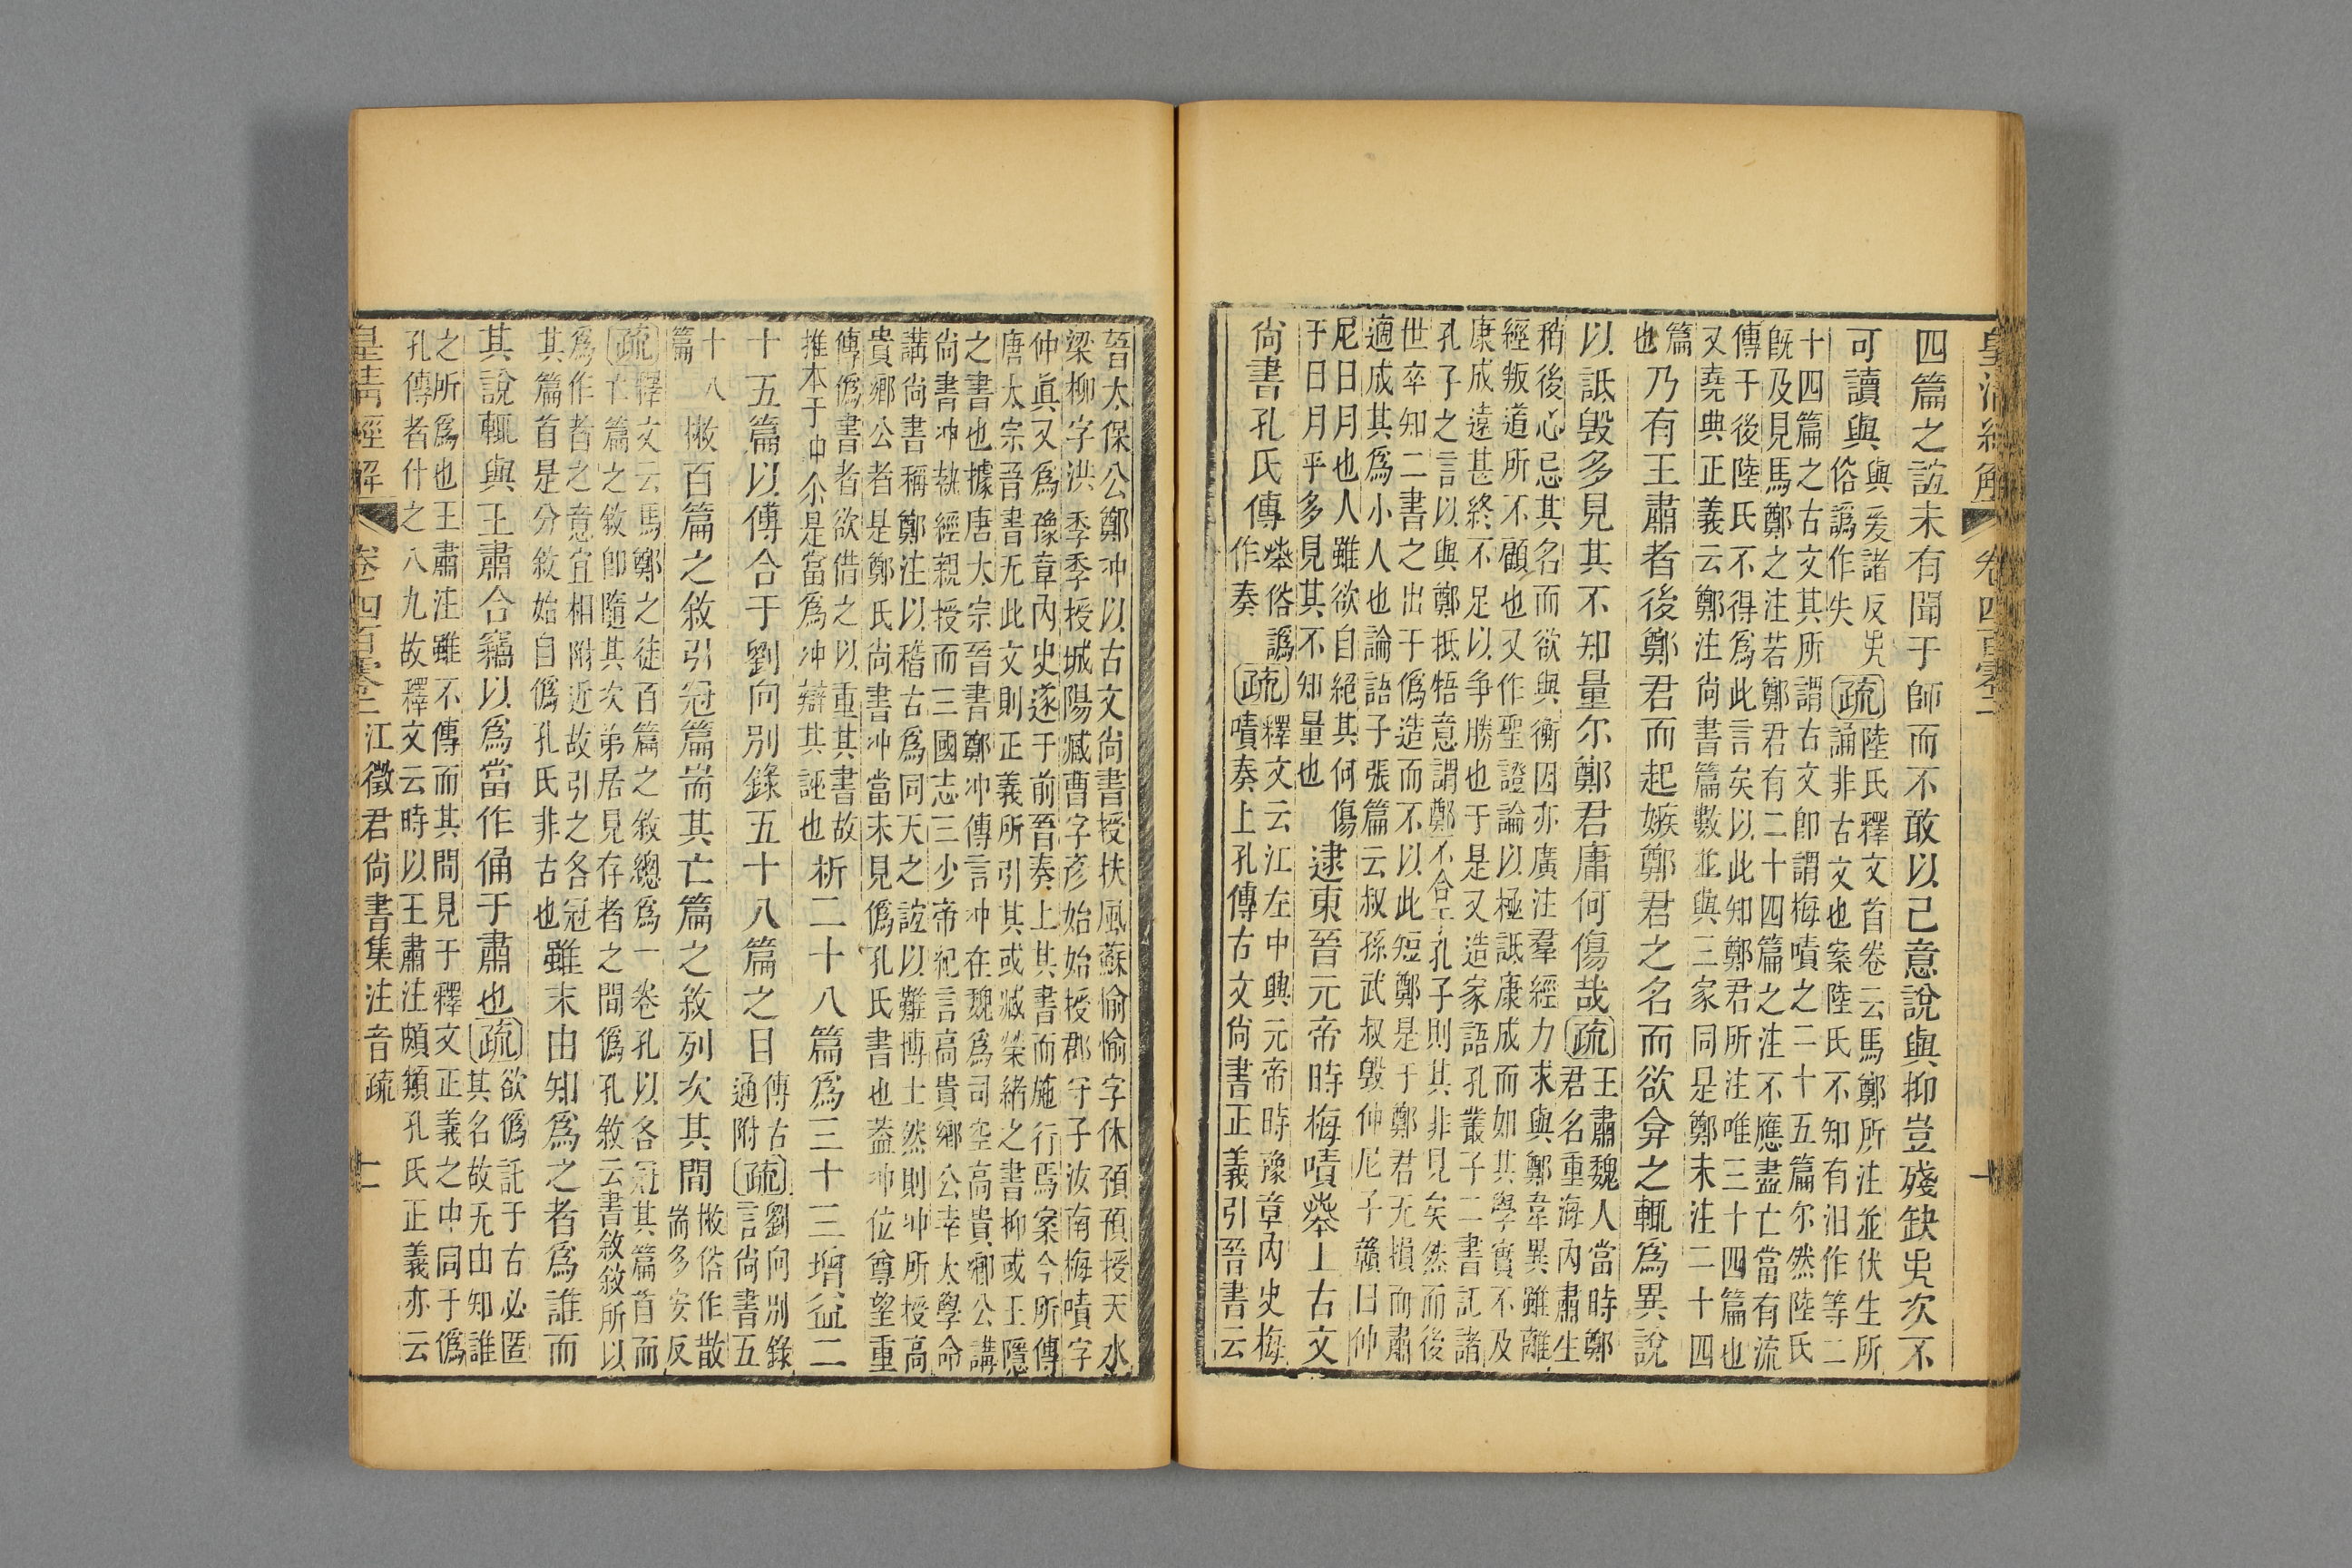 皇清經解 卷四百零二 十
四篇之誼未有聞于師而不敢以己意說與抑豈殘缺㞢次不
可讀與
與爰諸反㞢
俗譌作失
疏
陸氏釋文首卷云馬鄭所注並伏生所
誦非古文也案陸氏不知有汨作等二
十四篇之古文其所謂古文卽謂梅賾之二十五篇尒然陸氏
旣及見馬鄭之注若鄭君有二十四篇之注不應盡亡當有流
傳于後陸氏不得爲此言矣以此知鄭君所注唯三十四篇也
又堯典正義云鄭注尙書篇數並與三家同是鄭未注二十四
篇
也
乃有王肅者後鄭君而起嫉鄭君之名而欲弇之輒爲異說
以詆毀多見其不知量尒鄭君庸何傷哉
疏
王肅魏人當時鄭
君名重海內肅生
稍後心忌其名而欲與衡因亦廣注羣經力求與鄭韋異雖離
經叛道所不顧也又作聖證論以極詆康成而如其學實不及
康成遠甚終不足以争勝也于是又造家語孔叢子二書託諸
孔子之言以與鄭抵牾意謂鄭不合于孔子則其非見矣然而後
世卒知二書之出于僞造而不以此短鄭是于鄭君无損而肅
適成其爲小人也論語子張篇云叔孫武叔毀仲尼子贛曰仲
尼日月也人雖欲自絕其何傷
于日月乎多見其不知量也
逮東晉元帝時梅賾𦦙上古文
尙書孔氏傳
𦦙俗譌
作奏
疏
釋文云江左中興元帝時豫章內史梅
賾奏上孔傳古文尙書正義引晉書云
晉太保公鄭冲以古文尙書授扶風蘇愉愉字休預預授天水
梁柳字洪季季授城陽臧曹字彥始始授郡守子汝南梅賾字
仲眞又爲豫章內史遂于前晉奏上其書而施行焉案今所傳
唐太宗晉書无此文則正義所引其或臧榮緒之書抑或王隱
之書也據唐太宗晉書鄭冲傳言冲在魏爲司空高貴鄉公講
尙書冲執經親授而三國志三少帝紀言高貴鄉公幸太學命
講尙書稱鄭注以稽古爲同天之誼以難博士然則冲所授高
貴鄉公者是鄭氏尙書冲當未見僞孔氏書也蓋冲位尊望重
傳僞書者欲借之以重其書故
推本于冲尒是當爲冲辯其誣也
析二十八篇爲三十三增益二
十五篇以傅合于劉向別錄五十八篇之目
傅古
通附
疏
劉向別錄
言尙書五
十八
篇
㪚百篇之敘引冠篇耑其亡篇之敘列次其間
㪚俗作散
耑多安反
疏
釋文云馬鄭之徒百篇之敘總爲一卷孔以各冠其篇首而
亡篇之敘卽隨其次弟居見存者之間僞孔敘云書敘敘所以
爲作者之意宜相附近故引之各冠
其篇首是分敘始自僞孔氏非古也
雖末由知爲之者爲誰而
其說輒與王肅合竊以爲當作俑于肅也
疏
欲僞託于古必匿
其名故无由知誰
之所爲也王肅注雖不傳而其間見于釋文正義之中同于僞
孔傳者什之八九故釋文云時以王肅注頗類孔氏正義亦云
皇清經解 卷四百零二 江徵君尙書集注音疏 十一